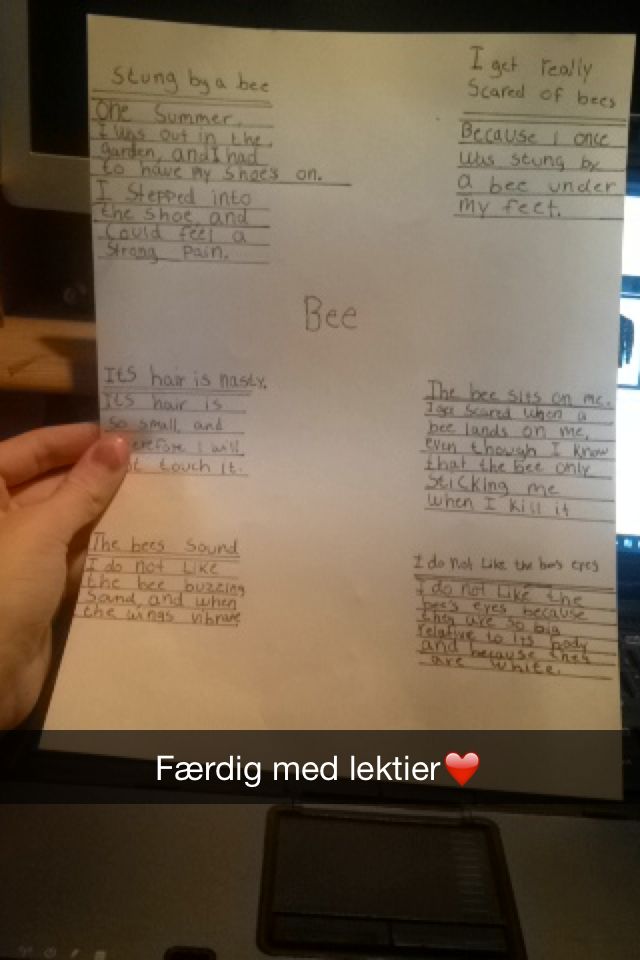 Stung by a bee
One Summer,
I was out in the
garden, and I had
to have my shoes on.
I stepped into
the shoe, and
could feel a
strong pain.
I get really
scared of bees
Because I once
was stung by
a bee under
my feet.
Bee
Its hair is nasty.
Its hair is
so small, and
I will
touch it.
The bee sits on me.
I get scared when a
bee lands on me,
even though I know
that the bee only
sticking me
when I kill it
The bees sound
I do not like
the bee buzzing
sound, and when
the wings vibrate
I do not like the bee's eyes
I do not like the
bee's eyes because
they are so big
relative to its body
and because they
are white.
Færdig med lektier❤️